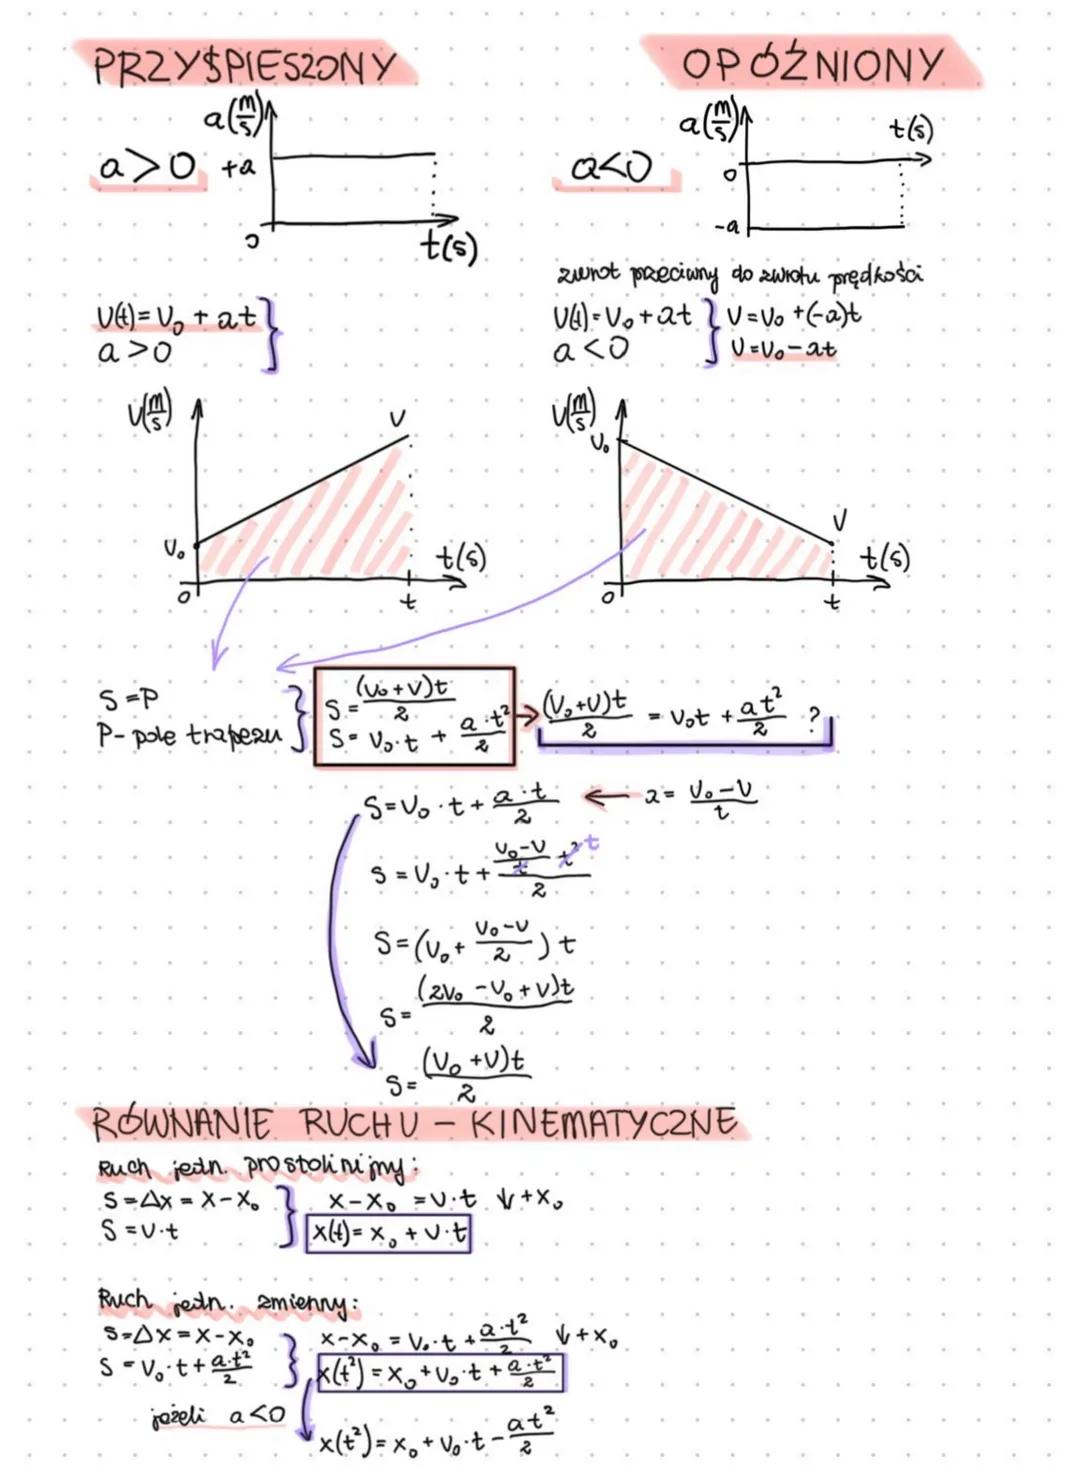 PRZYŚPIESZONY
OPÓŹNIONY
a(m/s)
a>0
+a
0
t(s)
a(m/s)
t(s)
a<0
0
-a
zwrot przeciwny do zwrotu prędkości
V(t)=V₀ + at
a>0
V(t)=V₀+at
a<0
V=V₀+(-a)t
V=V₀-at
V(m/s)
V
V₀
t(s)
0
t
V(m/s)
V₀
V
t(s)
0
t
S=P
P- pole trapezu
S=(V₀+V)t/2
S= V₀·t + a·t²/2
(V₀+V)t/2 = V₀t + at²/2 ?
S=V₀·t+a·t/2
a= V₀-V/t
S=V₀·t+ V₀-V/t t² t/2
S=(V₀+ V₀-V/2)t
S= (2V₀-V₀+V)t/2
S= (V₀+V)t/2
RÓWNANIE RUCHU - KINEMATYCZNE
Ruch jedn. prostolinijny:
S=Δx=x-x₀
S=V·t
x-x₀=V·t +x₀
x(t)=x₀+V·t
Ruch jedn. zmienny:
S=Δx=x-x₀
S=V₀·t+a·t²/2
x-x₀=V₀·t+a·t²/2 +x₀
x(t²)=x₀+V₀·t+a·t²/2
jeżeli a<0
x(t²)=x₀+V₀·t-at²/2